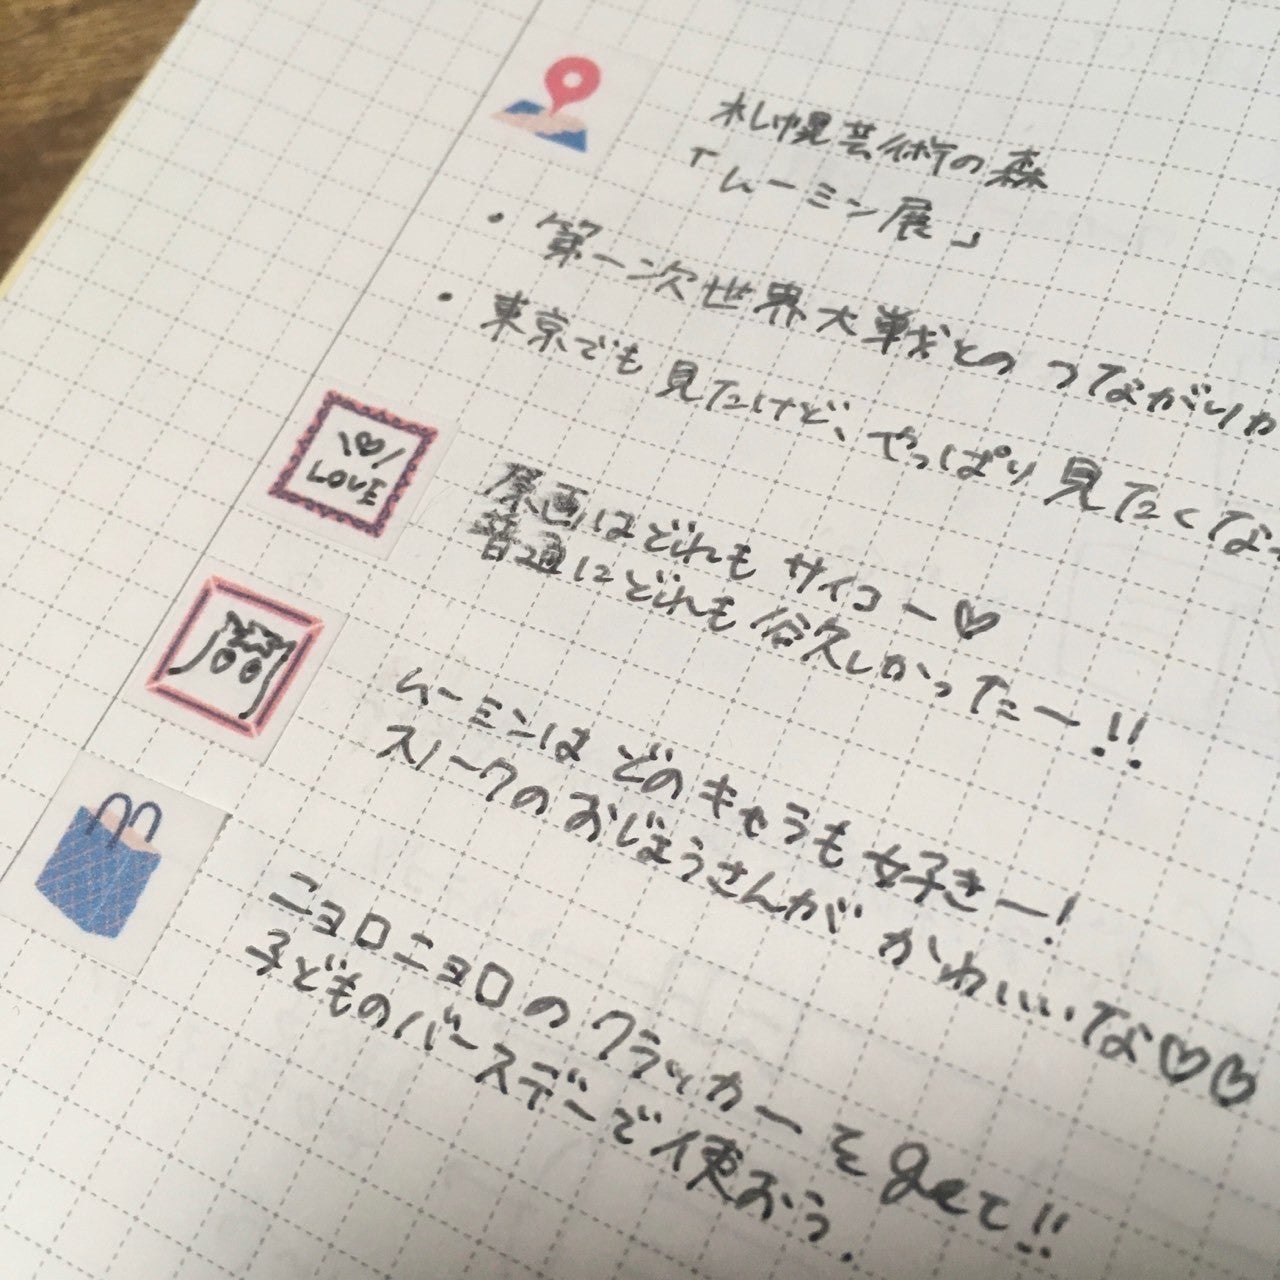 札幌芸術の森
「ムーミン展」
・第一次世界大戦とのつながりか
・東京でも見たけど、やっぱり見たくなっ
\♡/
LOVE
原画はどれもサイコー♡
普通にどれも欲しかったー!!
ムーミンはどのキャラも好きー!
スノークのおじょうさんがかわいいな♡♡
ニョロニョロのクラッカーをget!!
子どものバースデーで使おう.